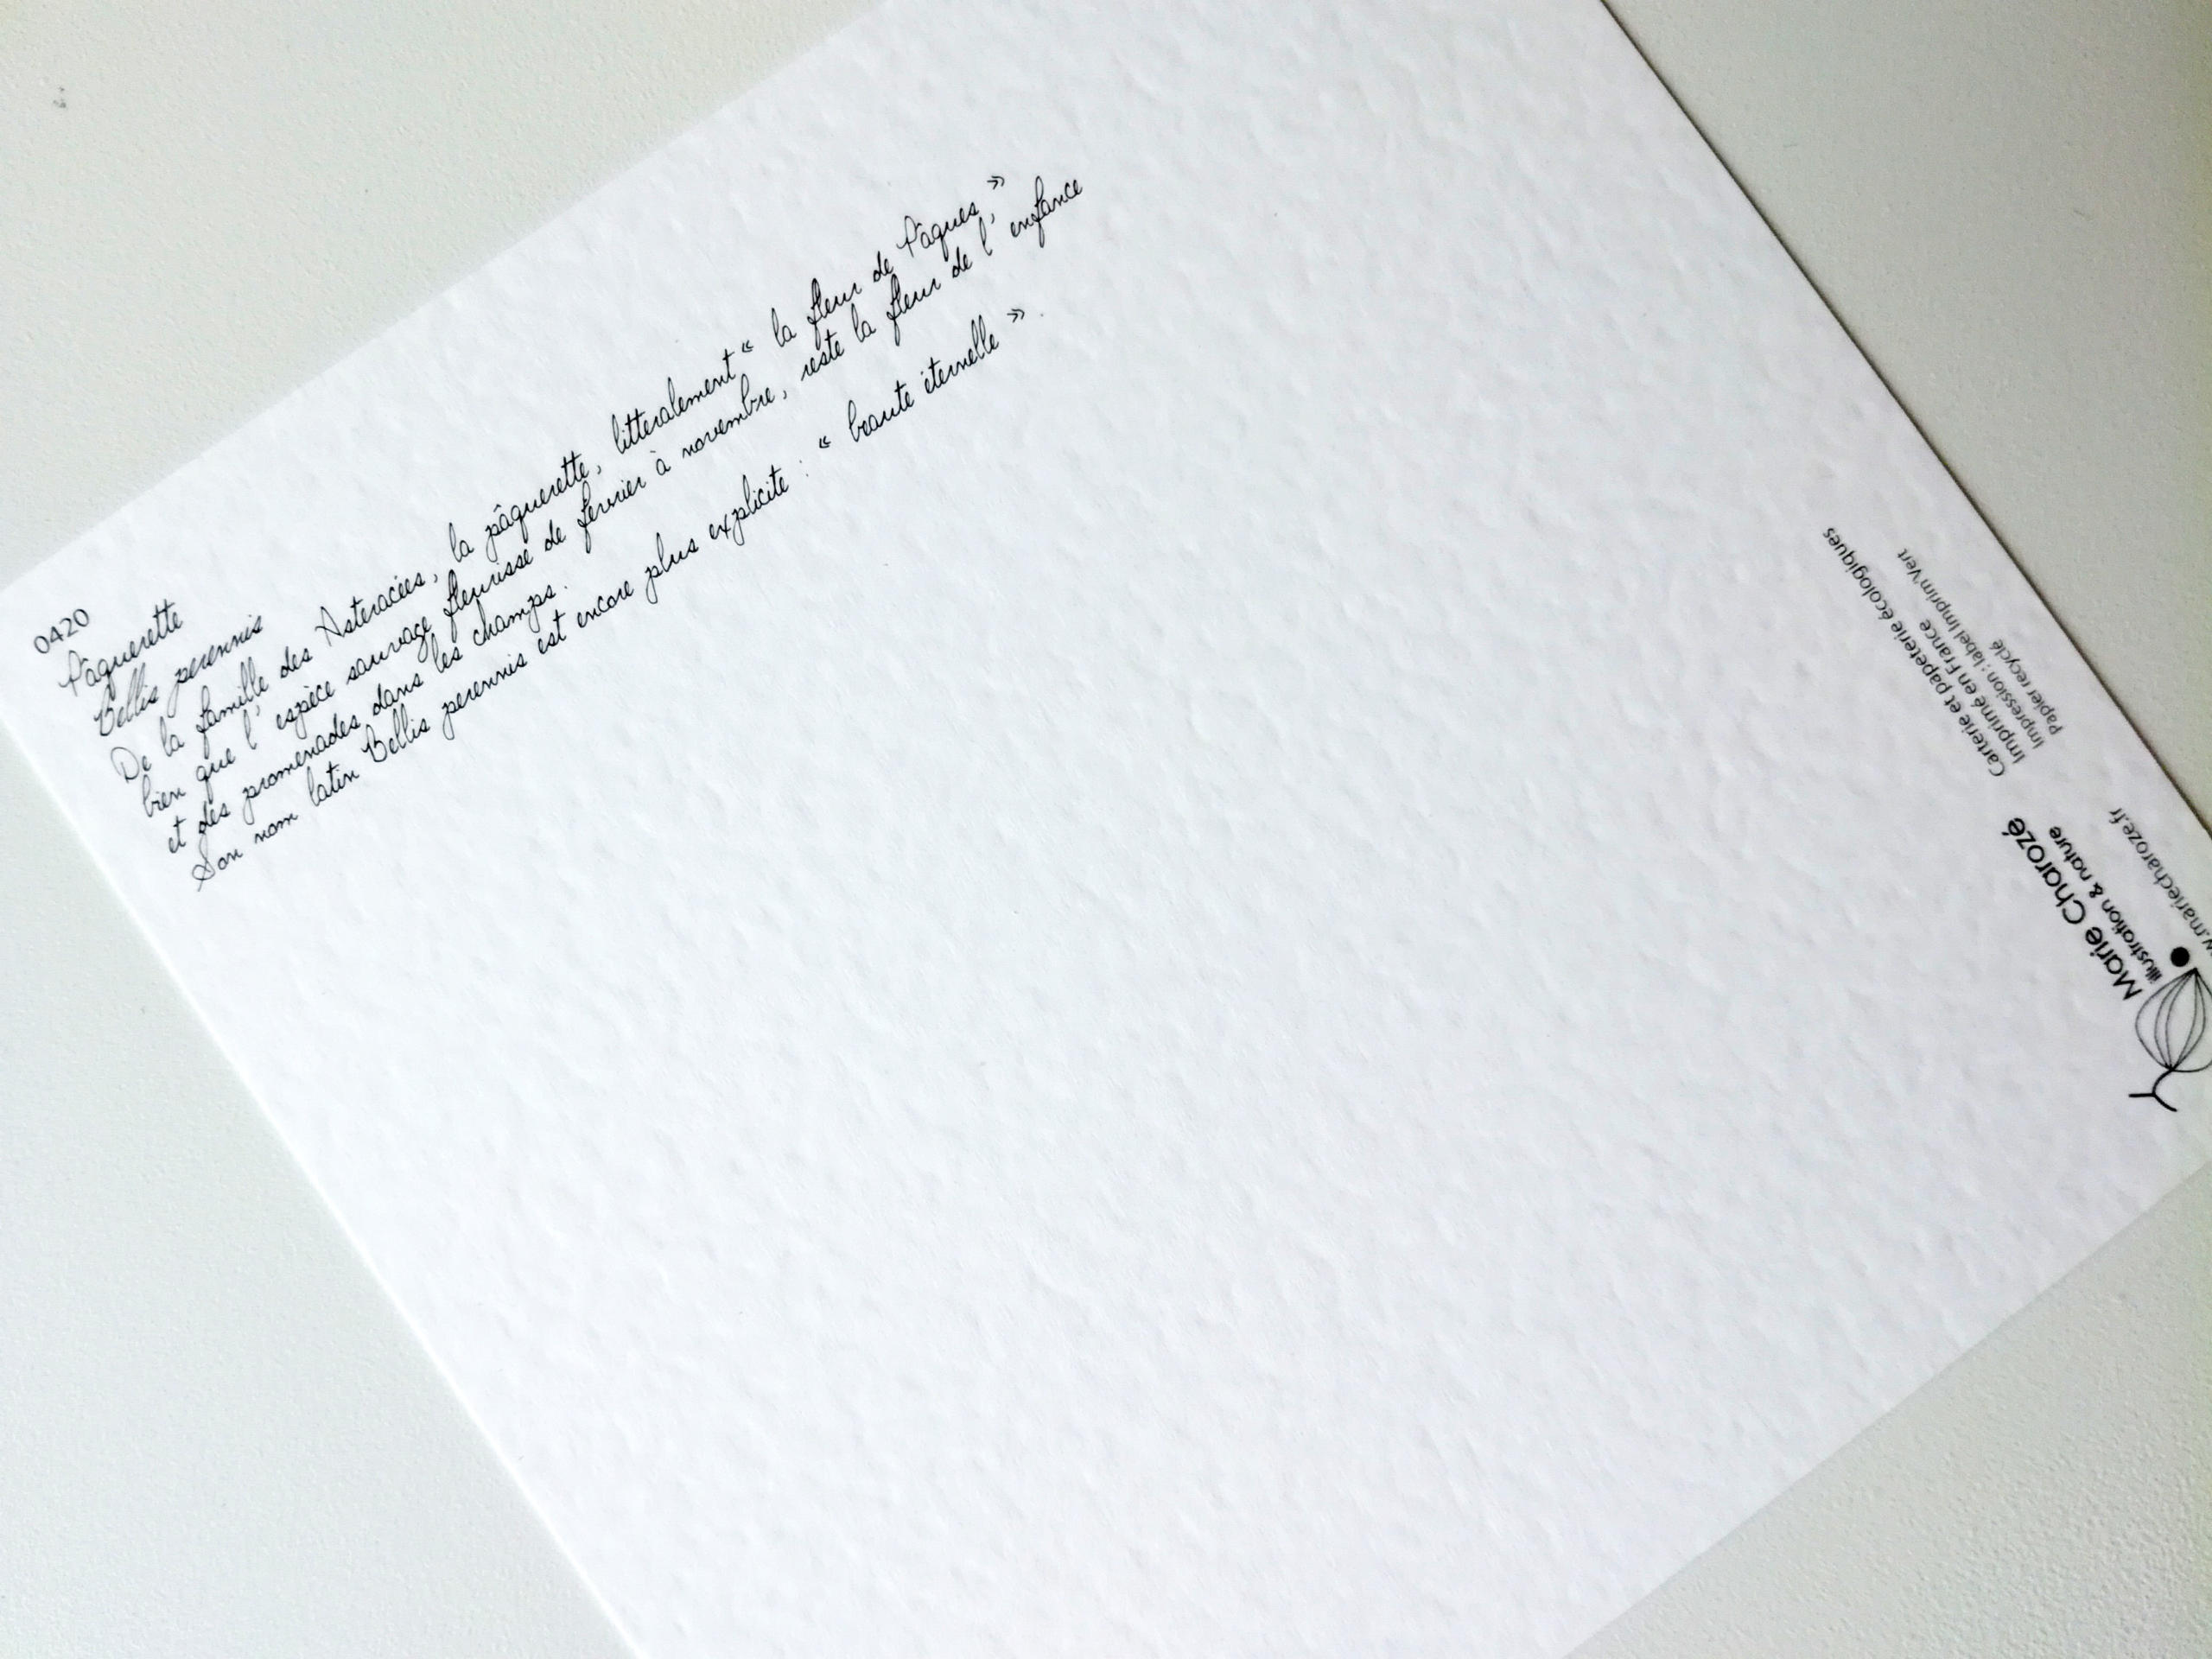 0420
Pâquerette
Bellis perennis
De la famille des Asteracées, la pâquerette, litteralement « la fleur de Pâques, »
bien que l' espèce sauvage fleurisse de fevrier à novembre, reste la fleur de l' enfance
et des promenades dans les champs.
Son nom latin Bellis perennis est encore plus explicite : « beauté éternelle » .
Marie Charozé
illustration & nature
w.mariecharoze.fr
Carterie et papeterie écologiques
Imprimé en France
Impression : label Imprim'Vert
Papier recyclé